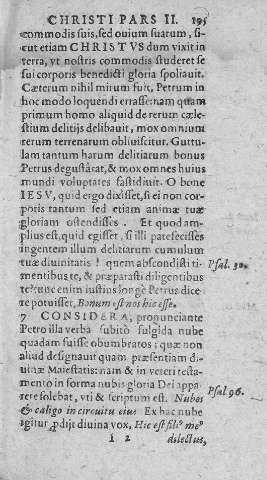 CHRISTI PARS II. 195
commodis suis, sed ovium suarum, si-
cut etiam CHRISTVS dum vixit in
terra, vt nostris commodis studeret se
sui corporis benedicti gloria spoliauit.
Cæterum nihil mirum fuit, Petrum in
hoc modo loquendi errasse: nam quam
primum homo aliquid de rerum cæle-
stium delitijs delibauit, mox omnium
rerum terrenarum obliuiscitur. Guttu-
lam tantum harum delitiarum bonus
Petrus degustârat, & mox omnes huius
mundi voluptates fastidiuit. O bone
IESV, quid ergo dixisset, si ei non cor-
poris tantum sed etiam animæ tuæ
gloriam ostendisses. Et quod am-
plius est, quid egisset, si illi patefecisses
ingentem illum delitiarum cumulum
tuæ diuinitatis ? quem abscondisti ti- Psal. 30.
mentibus te, & præparasti diligentibus
te? tunc enim iustius longè Petrus dice-
re potuisset, Bonum est nos hic esse.
7 CONSIDERA, pronunciante
Petro illa verba subitò fulgida nube
quadam fuisse obumbratos; quæ non
aliud designauit quam præsentiam di-
uinæ Maiestatis: nam & in veteri testa-
mento in forma nubis gloria Dei appa-
rere solebat, vti & scriptum est. Nubes Psal 96.
& caligo in circuitu eius Ex hac nube
igitur prodijt diuina vox, Hic est fili9 me9
i 2 dilectus,